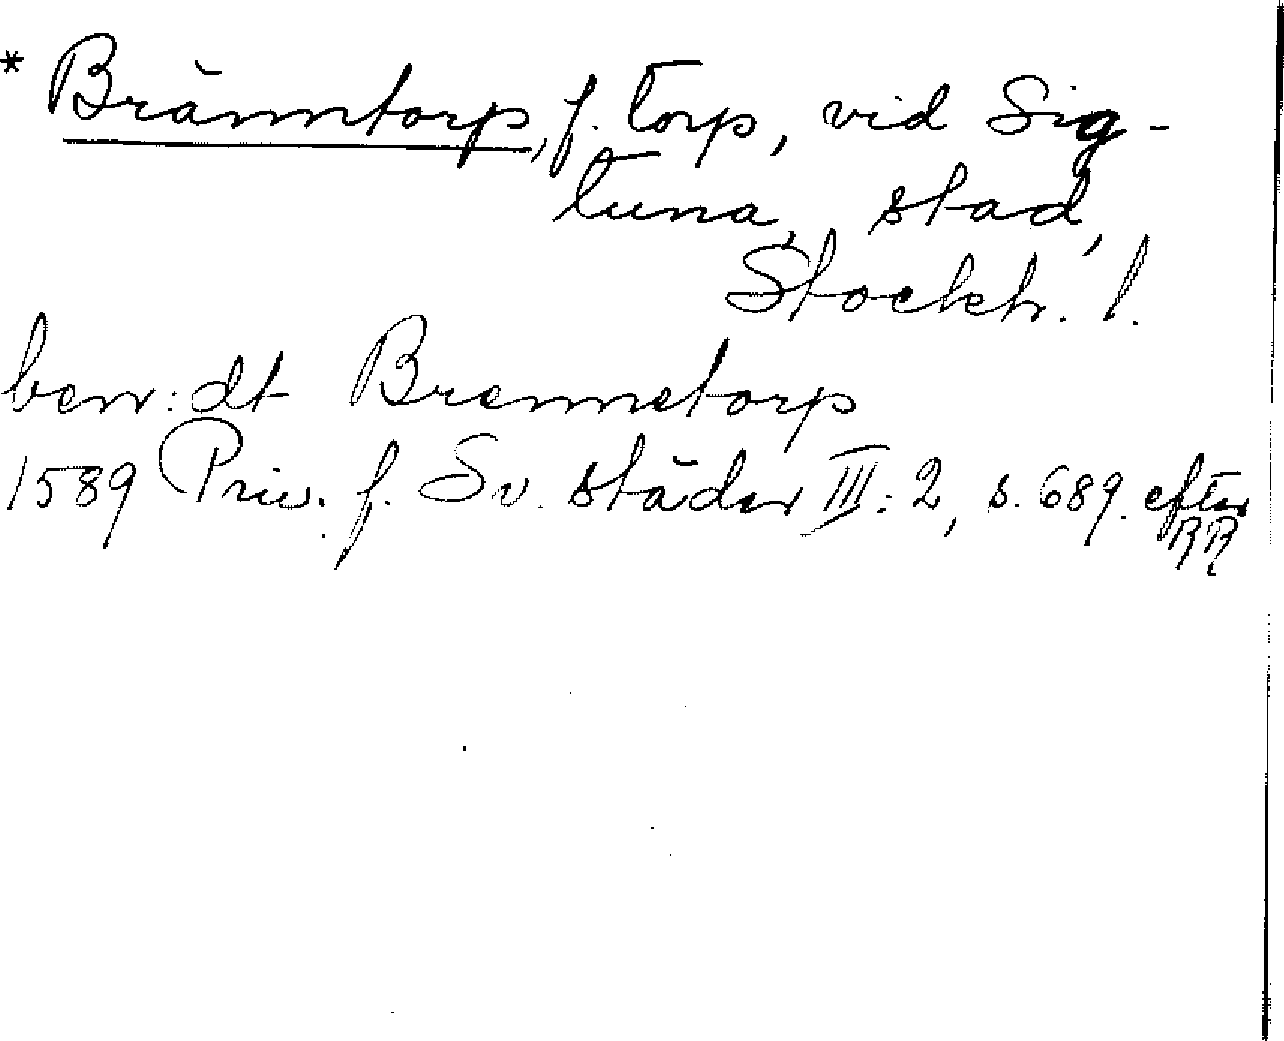 * Bränntorp, f. torp, vid Sig-
tuna, stad,
Stockh. l.
benr: dt Brennetorp
1589 Priv. f. Sv. städer III: 2, s. 689. efter
RR